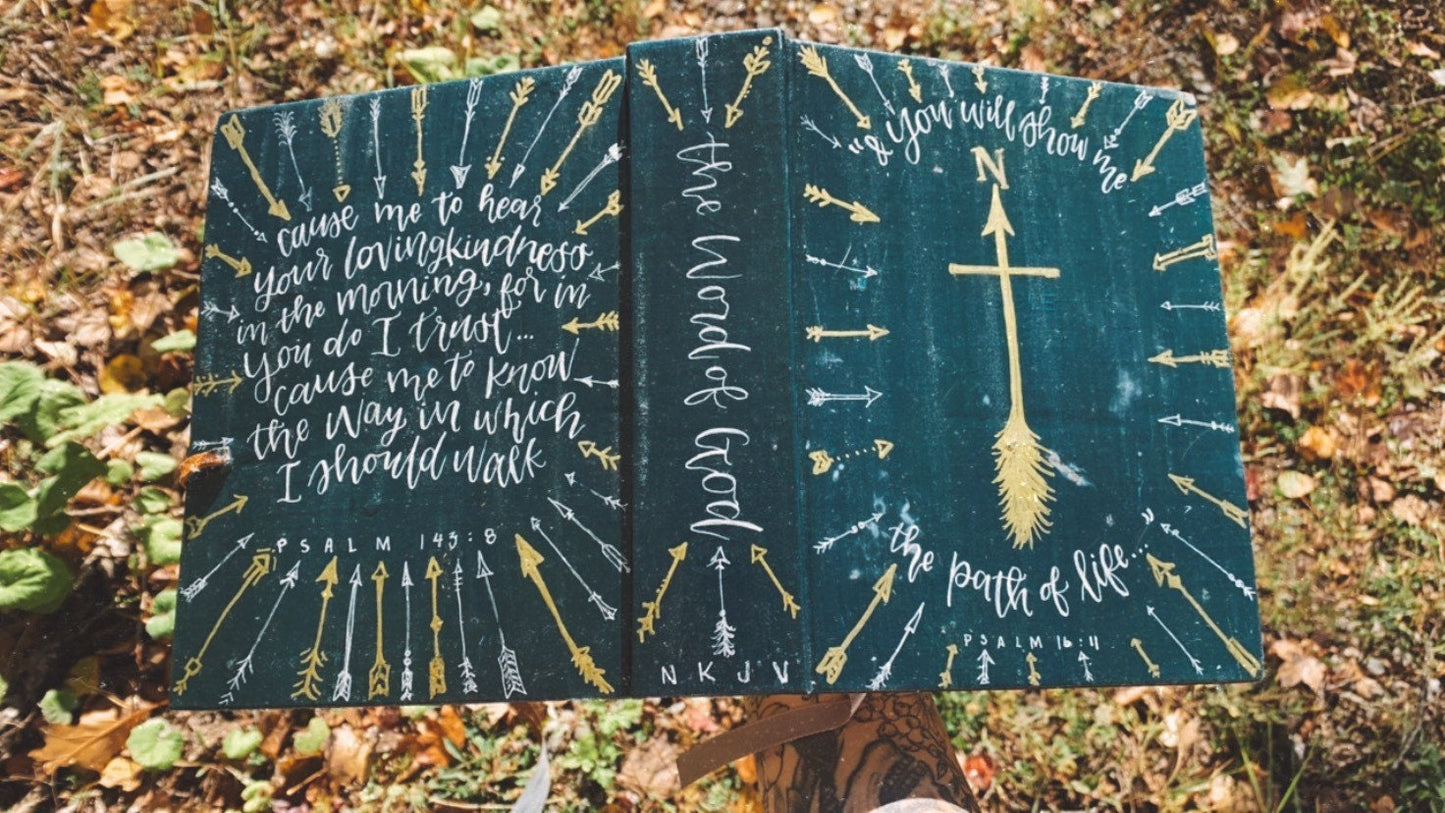 cause me to hear
your lovingkindness
in the morning, for in
you do I trust...
cause me to know
the way in which
I should walk
PSALM 143:8
the Word of God
NKJV
"& you will show me
N
the path of life..."
PSALM 16:11